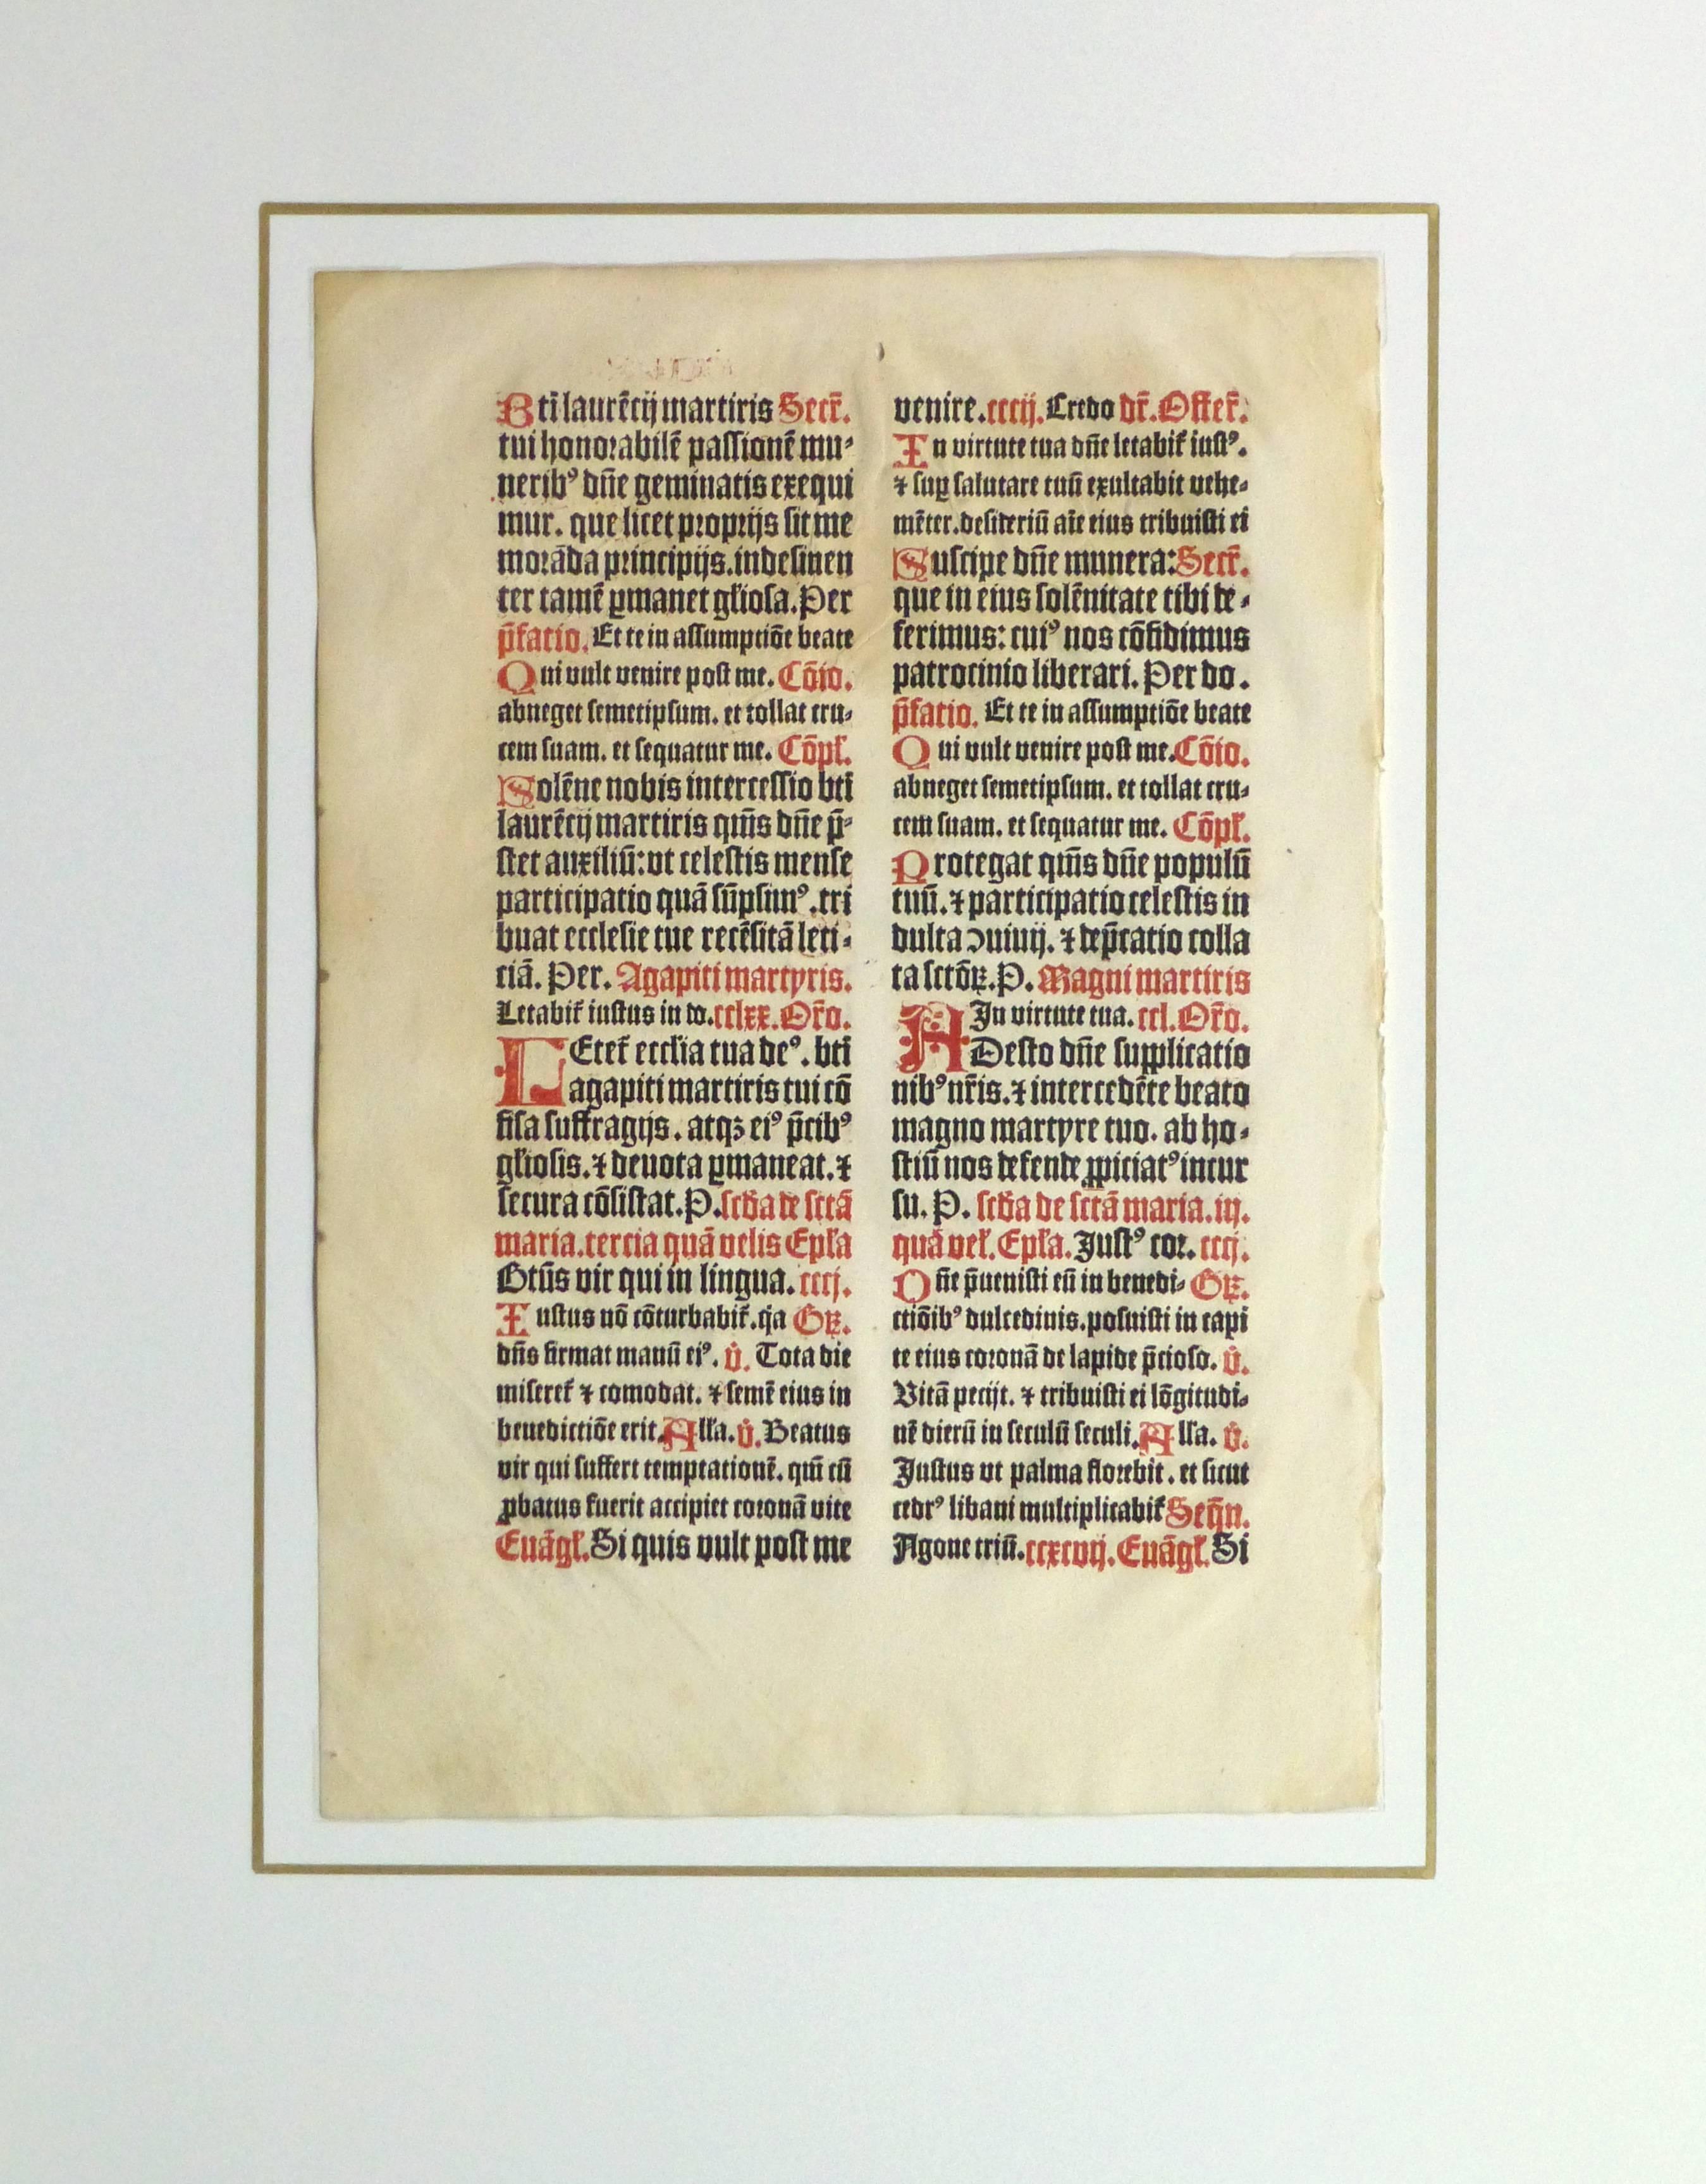 Bti laurẽcij martiris Secr̃.
tui honorabilẽ passionẽ mu⸗
nerib⁹ dñe geminatis exequi
mur. que licet proprijs sit me
morãda principijs. indesinen
ter tamẽ ꝑmanet gl̃iosa. Per
p̃fatio. Et te in assumptiõe beate
Qui vult venire post me. Cõio.
abneget semetipsum. et tollat cru⸗
cem suam. et sequatur me. Cõpl̃.
Solẽne nobis intercessio bti
laurẽcij martiris qm̃s dñe p̃⸗
stet auxiliũ: vt celestis mense
participatio quã sũpsim⁹. tri
buat ecclesie tue recẽsitã leti⸗
ciã. Per. Agapiti martyris.
Letabit̃ iustus in do. cclxx. Oro̊.
LEtet̃ eccl̃ia tua de⁹. bti
agapiti martiris tui cõ
fisa suffragijs. atqꝫ ei⁹ p̃cib⁹
gl̃iosis. ⁊ deuota ꝑmaneat. ⁊
secura cõsistat. P. scd̃a de sctã
maria. tercia quã velis Epl̃a
Btũs vir qui in lingua. cccj.
Iustus nõ cõturbabit̃. qa Gꝶ.
dñs firmat manũ ei⁹. v̊. Tota die
miseret̃ ⁊ comodat. ⁊ semẽ eius in
benedictiõe erit. All̃a. v̊. Beatus
vir qui suffert temptationẽ. qm̃ cũ
ꝓbatus fuerit accipiet coronã vite
Euãgl̃. Si quis vult post me
venire. cccij. Credo dr̃. Offer̃.
In virtute tua dñe letabit̃ iust⁹.
⁊ suꝑ salutare tuũ exultabit vehe⸗
mẽter. desideriũ aĩe eius tribuisti ei
Suscipe dñe munera: Secr̃.
que in eius solẽnitate tibi de⸗
ferimus: cui⁹ nos cõfidimus
patrocinio liberari. Per do.
p̃fatio. Et te in assumptiõe beate
Qui vult venire post me. Cõio.
abneget semetipsum. et tollat cru⸗
cem suam. et sequatur me. Cõpl̃.
Protegat qm̃s dñe populũ
tuũ. ⁊ participatio celestis in
dulta ↄuiuij. ⁊ dep̃catio colla
ta sctõꝝ. P. Magni martiris
In virtute tua. ccl. Oro̊.
ADesto dñe supplicatio
nib⁹ nr̃is. ⁊ intercedẽte beato
magno martyre tuo. ab ho⸗
stiũ nos defende ꝓpiciat⁹ incur
su. P. scd̃a de sctã maria. iij.
quã vel̃. Epl̃a. Just⁹ cor. cccj.
Dñe p̃uenisti eũ in benedi⸗ Gꝶ.
ctiõib⁹ dulcedinis. posuisti in capi
te eius coronã de lapide p̃cioso. v̊.
Vitã pecijt. ⁊ tribuisti ei lõgitudi⸗
nẽ dierũ in seculũ seculi. All̃a. v̊.
Justus vt palma florebit. et sicut
cedr⁹ libani multiplicabit̃ Seq̃n.
Agone triũ. ccxcvij. Euãgl̃. Si